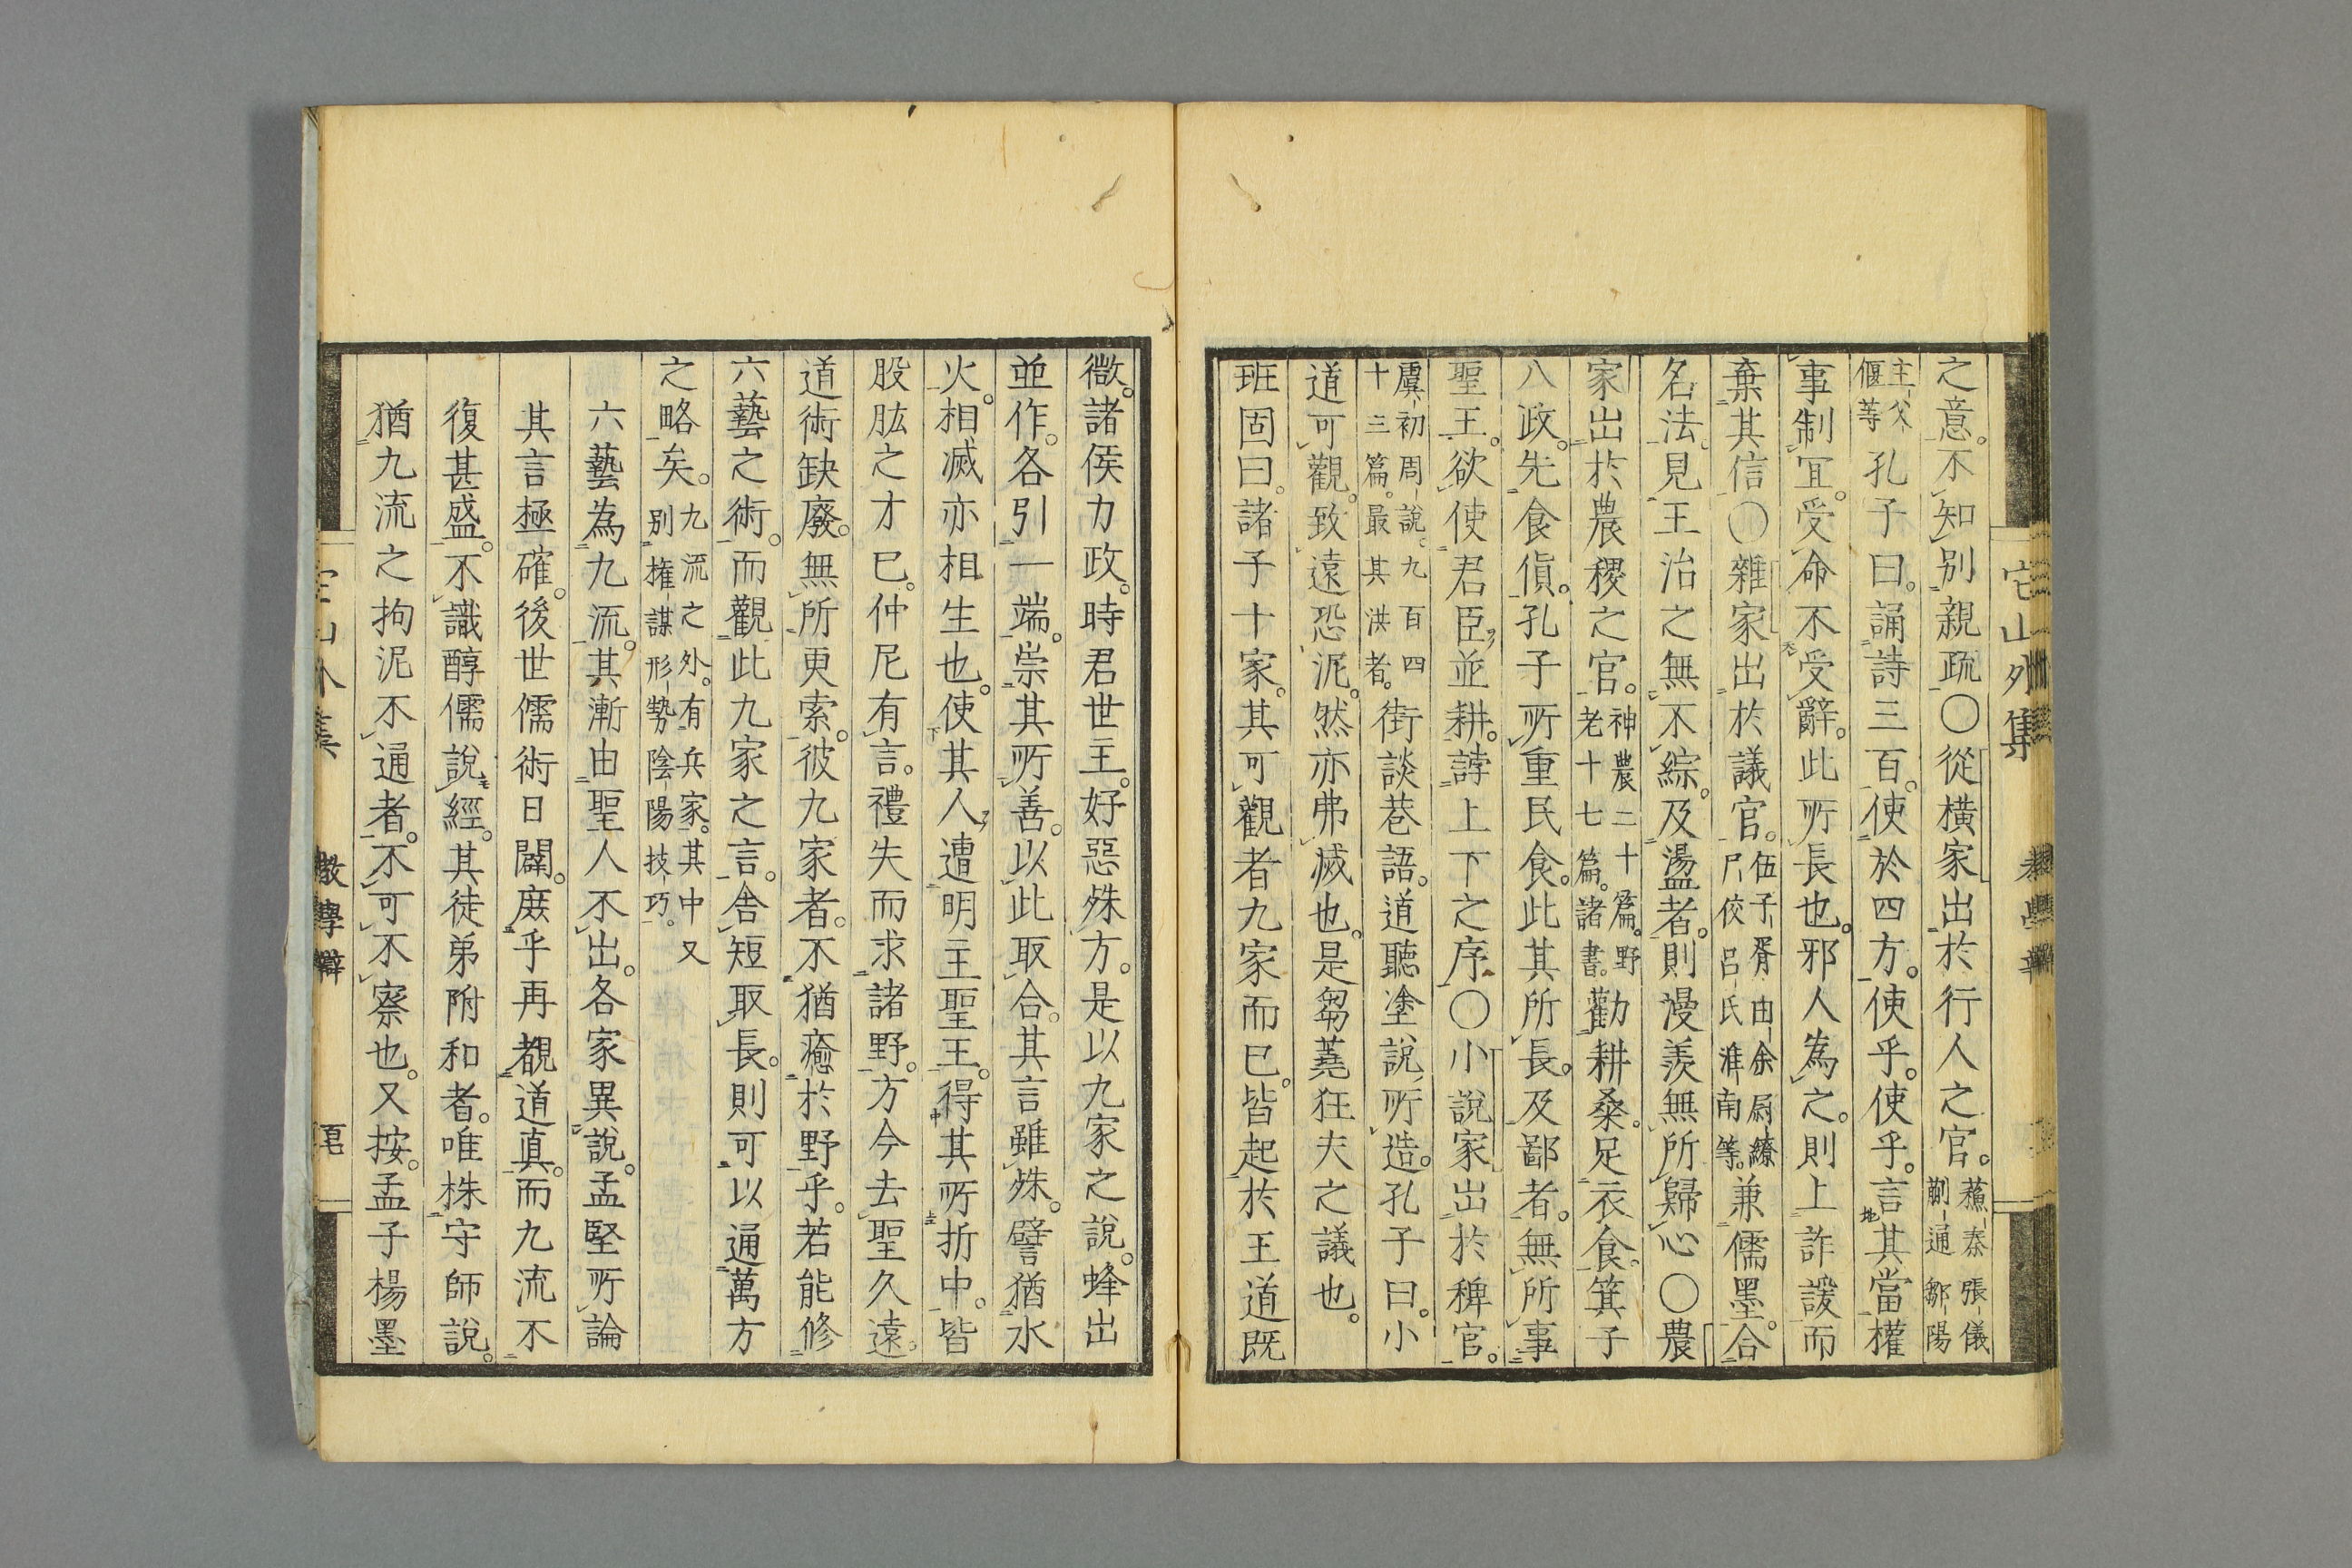 之意。不知別親疏〇從橫家出於行人之官。蘇秦張儀蒯通鄒陽
主父偃等孔子曰。誦詩三百。使於四方。使乎。使乎。言其當權
事制冝。受命不受辭。此所長也。邪人為之。則上詐諼而
棄其信〇雜家出於議官。伍子胥由余尉繚尸佼呂氏淮南等。兼儒墨。合
名法。見王治之無不綜。及盪者。則漫羨無所歸心〇農
家出於農稷之官。神農二十篇。野老十七篇。諸書。勸耕桑。足衣食。箕子
八政。先食貨。孔子所重民食。此其所長。及鄙者。無所事
聖王。欲使君臣並耕。誖上下之序〇小說家出於稗官。
虞初周說。九百四十三篇。最其洪者。街談巷語。道聽塗說所造。孔子曰。小
道可觀。致遠恐泥。然亦弗滅也。是芻蕘狂夫之議也。
班固曰。諸子十家。其可觀者九家而已。皆起於王道既
宅山外集
微。諸侯力政。時君世主。好惡殊方。是以九家之說。蜂出
並作。各引一端。崇其所善。以此取合。其言雖殊。譬猶水
火。相滅亦相生也。使其人遭明王聖王。得其所折中。皆
股肱之才已。仲尼有言。禮失而求諸野。方今去聖久遠。
道術缺廢。無所更索。彼九家者。不猶瘉於野乎。若能修
六藝之術。而觀此九家之言。舎短取長。則可以通萬方
之略矣。九流之外。有兵家。其中又別權謀形勢陰陽技巧。
六藝為九流。其漸由聖人不出。各家異說。孟堅所論
其言極確。後世儒術日闢。庶乎再覩道真。而九流不
復甚盛。不識醇儒說經。其徒弟附和者。唯株守師說。
猶九流之拘泥不通者。不可不察也。又按。孟子楊墨
教學辯